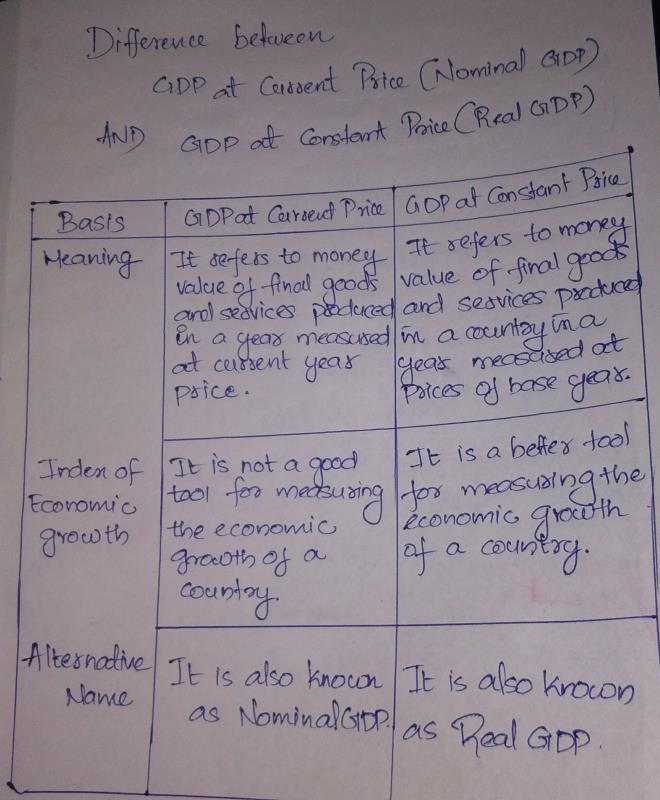 Difference between
GDP at Current Price (Nominal GDP)
AND GDP at Constant Price (Real GDP)
Basis
GDP at Current Price
GDP at Constant Price
Meaning
It refers to money
value of final goods
and services produced
in a year measured
at current year
price.
It refers to money
value of final goods
and services produced
in a country in a
year measured at
prices of base year.
Index of
Economic
growth
It is not a good
tool for measuring
the economic
growth of a
country.
It is a better tool
for measuring the
economic growth
of a country.
Alternative
Name
It is also known
as Nominal GDP.
It is also known
as Real GDP.